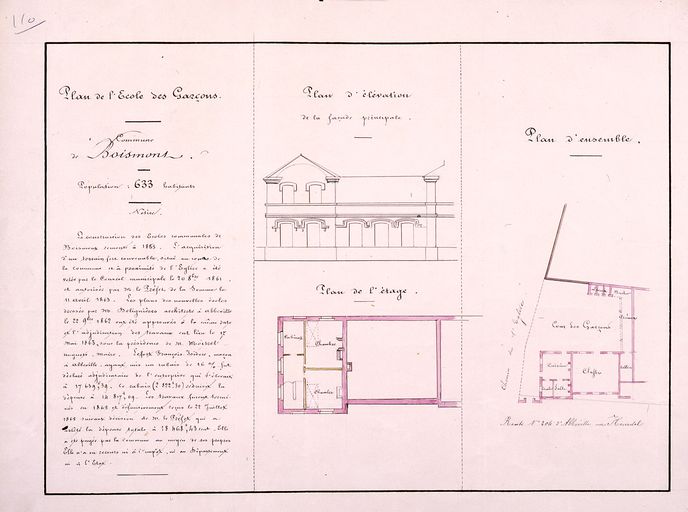 110
Plan de l'Ecole des Garçons.
Commune
de Boismont.
Population : 633 habitants
Notice.
La construction des Ecoles communales de
Boismont remonte à 1863. L'acquisition
d'un terrain fort convenable, situé au centre de
la commune et à proximité de l'Eglise a été
votée par le Conseil municipale le 20 8bre 1861
et autorisée par M. le Préfet de la Somme le
11 avril 1863. Les plans des nouvelles écoles
dressés par architecte à Abbeville
le 22 9bre 1862 ont été approuvés à la même date
et l'adjudication des travaux eut lieu le 17
Mai 1863, sous la présidence de M.
Auguste, maire. François Isidore, maçon
à Abbeville, ayant mis un rabais de fut
déclaré adjudicataire de l'entreprise qui s'élevait
à Ce rabais réduisit la
dépense à Les travaux furent termi-
nés en 1864 et définitivement reçus le 22 Juillet
1865 suivant décision de M. le Préfet qui a
arrêté la dépense totale à Elle
a été payée par la commune au moyen de ses propres
Elle n'a eu recours ni à l'impôt, ni au Département
ni à l'Etat.
Plan d'élévation
de la façade principale.
Plan de l'étage.
Cabinet
Chambre
Chambre
Plan d'ensemble.
Chemin de l'Eglise
Cour des Garçons
Cuisine
Salle
Classe
Route No 204 d'Abbeville au Hourdel